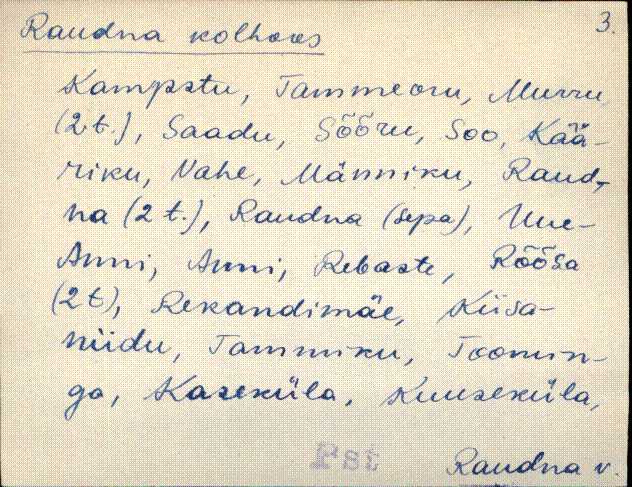 3.
Raudna kolhoos
Kampstu, Tammeoru, Murru
(2 t.), Saadu, Sõõru, Soo, Kää-
riku, Vahe, Männiku, Raud-
na (2 t.), Raudna (sepa), Uue-
Anni, Anni, Rebaste, Rõõsa
(2 t), Rekandimäe, Kiisa-
niidu, Tammiku, Toomin-
ga, Kaseküla, Kuuseküla,
Pst
Raudna v.